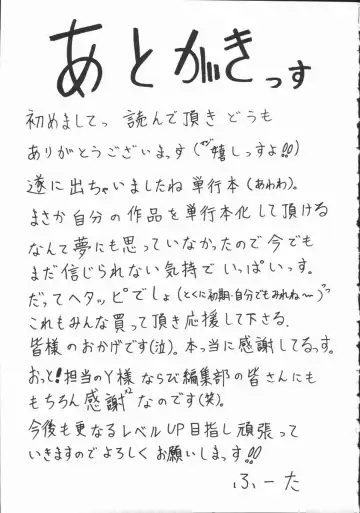 あとがきっす
初めましてっ 読んで頂き どうも
ありがとうございまっす(マジ嬉しっすよ!!)
遂に出ちゃいましたね 単行本(あわわ)。
まさか自分の作品を単行本化して頂ける
なんて夢にも思っていなかったので今でも
まだ信じられない気持でいっぱいっす。
だってヘタッピでしょ(とくに初期・自分でもみれね〜)
これもみんな買って頂き応援して下さる、
皆様のおかげです(泣)。本っ当に感謝してるっす。
おっと!担当のY様ならび編集部の皆さんにも
もちろん感謝なのです(笑)。
今後も更なるレベルUP目指し頑張って
いきますのでよろしくお願いしまっす!!
ふーた